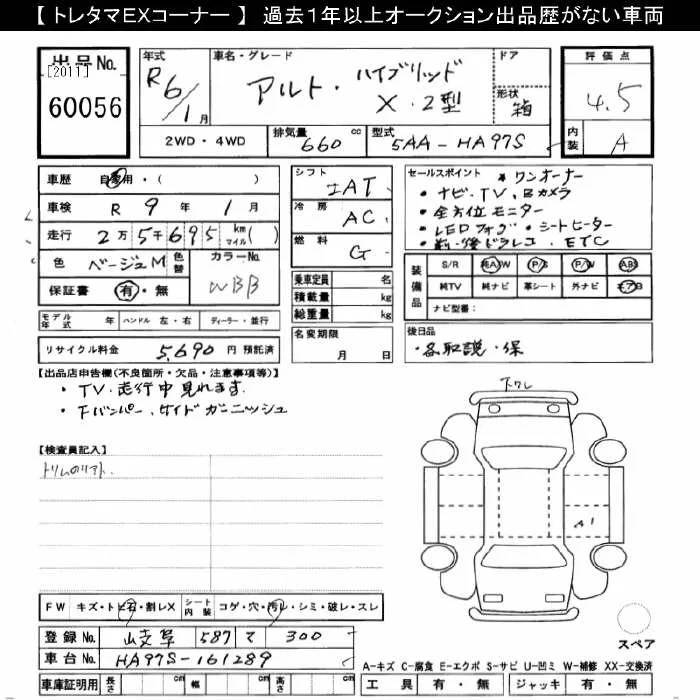 【 トレタマEXコーナー 】 過去１年以上オークション出品歴がない車両
出品No. [2011] 60056
年式 R6/1月
車名・グレード アルト・ハイブリッド X・2型
ドア 形状 箱
評価点 4.5
内装 A
2WD・4WD 排気量 660 cc 型式 5AA-HA97S
車歴 自家用・( )
車検 R 9年 1月
走行 2万5千695 km マイル ( )
色 ベージュM 色替 カラーNo. WBB
保証書 有・無
シフト IAT
冷房 AC
燃料 G
乗車定員 名
積載量 kg
総重量 kg
セールスポイント * ワンオーナー
・ナビ・TV、Bカメラ
・全方位モニター
・LEDフォグ・シートヒーター
・前・後ドラレコ、ETC
装備品 S/R 純A/W P/S P/W ABS
純TV 純ナビ 革シート 外ナビ エアB
ナビ型番：
モデル年式 年 ハンドル 左・右 ディーラー・並行
名変期限 月 日
後日品 ・各取説・保
リサイクル料金 5,690 円 預託済
【出品店申告欄(不良箇所・欠品・注意事項等)】
・TV走行中見れます
・Fバンパー、サイドガーニッシュ
下ワレ
【検査員記入】
A1
FW キズ・トビ石・割レX シート内装 コゲ・穴・汚レ・シミ・破レ・スレ
登録No. 岐阜 587 て 300
車台No. HA97S-161289
車庫証明用 長さ cm 幅 cm 高さ cm
スペア
A-キズ C-腐食 E-エクボ S-サビ U-凹ミ W-補修 XX-交換済
工具 有・無 ジャッキ 有・無